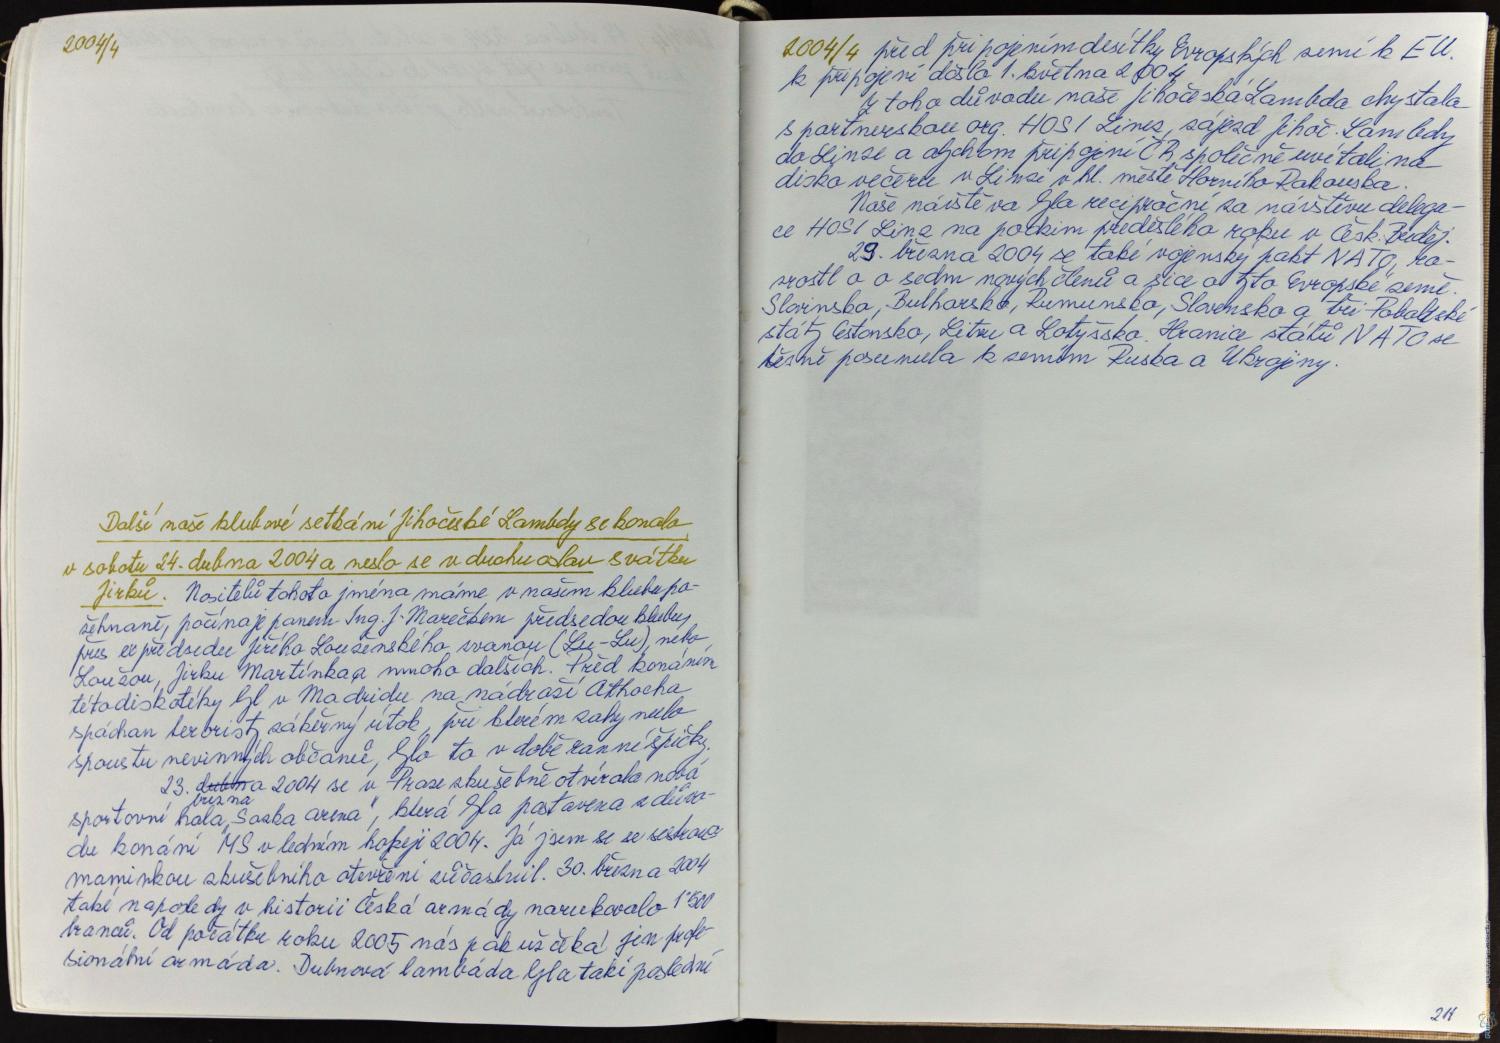 2004/4
Další naše klubové setkání Jihočeské Lambdy se konalo
v sobotu 24. dubna 2004 a neslo se v duchu oslav svátku
Jirků. Nositelů tohoto jména máme v našem klubu po-
žehnaně, počínaje panem Ing. J. Marečkem předsedou klubu,
přes ex předsedu Jiřího Louženského zvanou (Lu-Lu), nebo
Loužou, Jirku Martínka a mnoho dalších. Před konáním
této diskotéky byl v Madridu na nádraží Athocha
spáchan teroristy zákeřný útok, při kterém zahynulo
spoustu nevinných občanů, bylo to v době ranní špičky.
23. dubna března 2004 se v Praze zkušebně otvírala nová
sportovní hala „Sazka arena", která byla postavena z důvo-
du konání MS v ledním hokeji 2004. Já jsem se se sestrou a
maminkou zkušebního otevření zůčastnil. 30. března 2004
také naposledy v historii Česká armády narukovalo 1 500
branců. Od počátku roku 2005 nás pak už čeká jen profe-
sionální armáda. Dubnová lambáda byla taki poslední
2004/4 před připojením desítky Evropských zemí k EU.
k připojení došlo 1. května 2004
Z toho důvodu naše Jihočeská Lambda chystala
s partnerskou org. HOSI Linz, zájezd Jihoč. Lambdy
do Linze a abychom připojení ČR společně uvítali na
disko večeru v Linzi v hl. městě Horního Rakouska.
Naše návštěva byla reciproční za návštěvu delega-
ce HOSI Linz na podzim předešlého roku v Česk. Buděj.
29. března 2004 se také vojenský pakt NATO, ro-
zrostl o o sedm nových členů a sice o tyto Evropské země.
Slovinsko, Bulharsko, Rumunsko, Slovensko a tři Pobaltské
státy Estonsko, Litvu a Lotyšsko. Hranice států NATO se
těsně posunula k zemím Ruska a Ukrajiny.
211